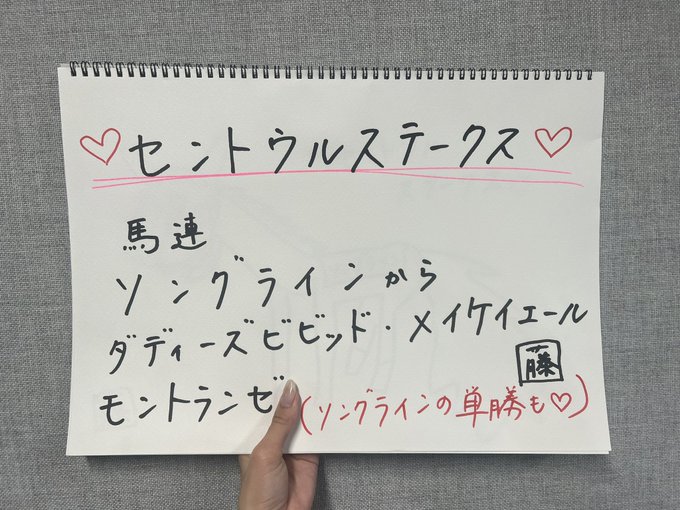 ♡セントウルステークス♡
馬連
ソングラインから
ダディーズビビッド・メイケイエール
モントランゼ
藤
(ソングラインの単勝も♡)